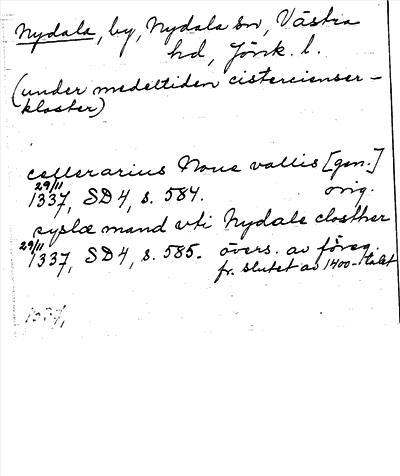 Nydala, by, Nydala sn, Västra
hd, Jönk. l.
(under medeltiden cistercienser-
kloster)
cellerarius Noue vallis [gen.]
29/11
1337, SD 4, s. 584. orig.
syslæ mand vti Nydale closther
29/11
1337, SD 4, s. 585. övers. av föreg.
fr. slutet av 1400-talet
1337,